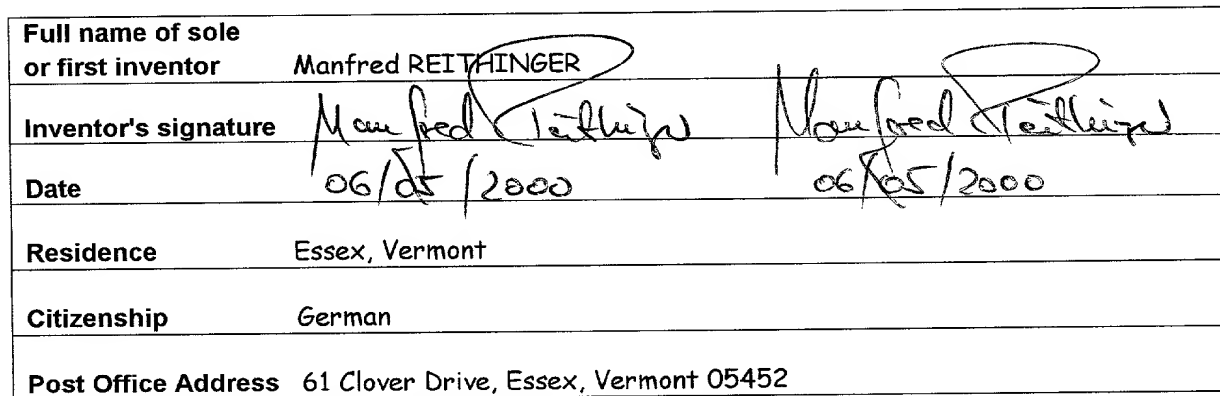 Full name of sole
or first inventor Manfred REITHINGER
Inventor's signature Manfred Reithinger Manfred Reithinger
Date 06/05/2000 06/05/2000
Residence Essex, Vermont
Citizenship German
Post Office Address 61 Clover Drive, Essex, Vermont 05452